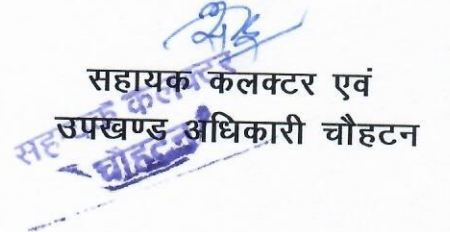 सहायक कलक्टर एवं
उपखण्ड अधिकारी चौहटन
सहायक कलक्टर
चौहटन